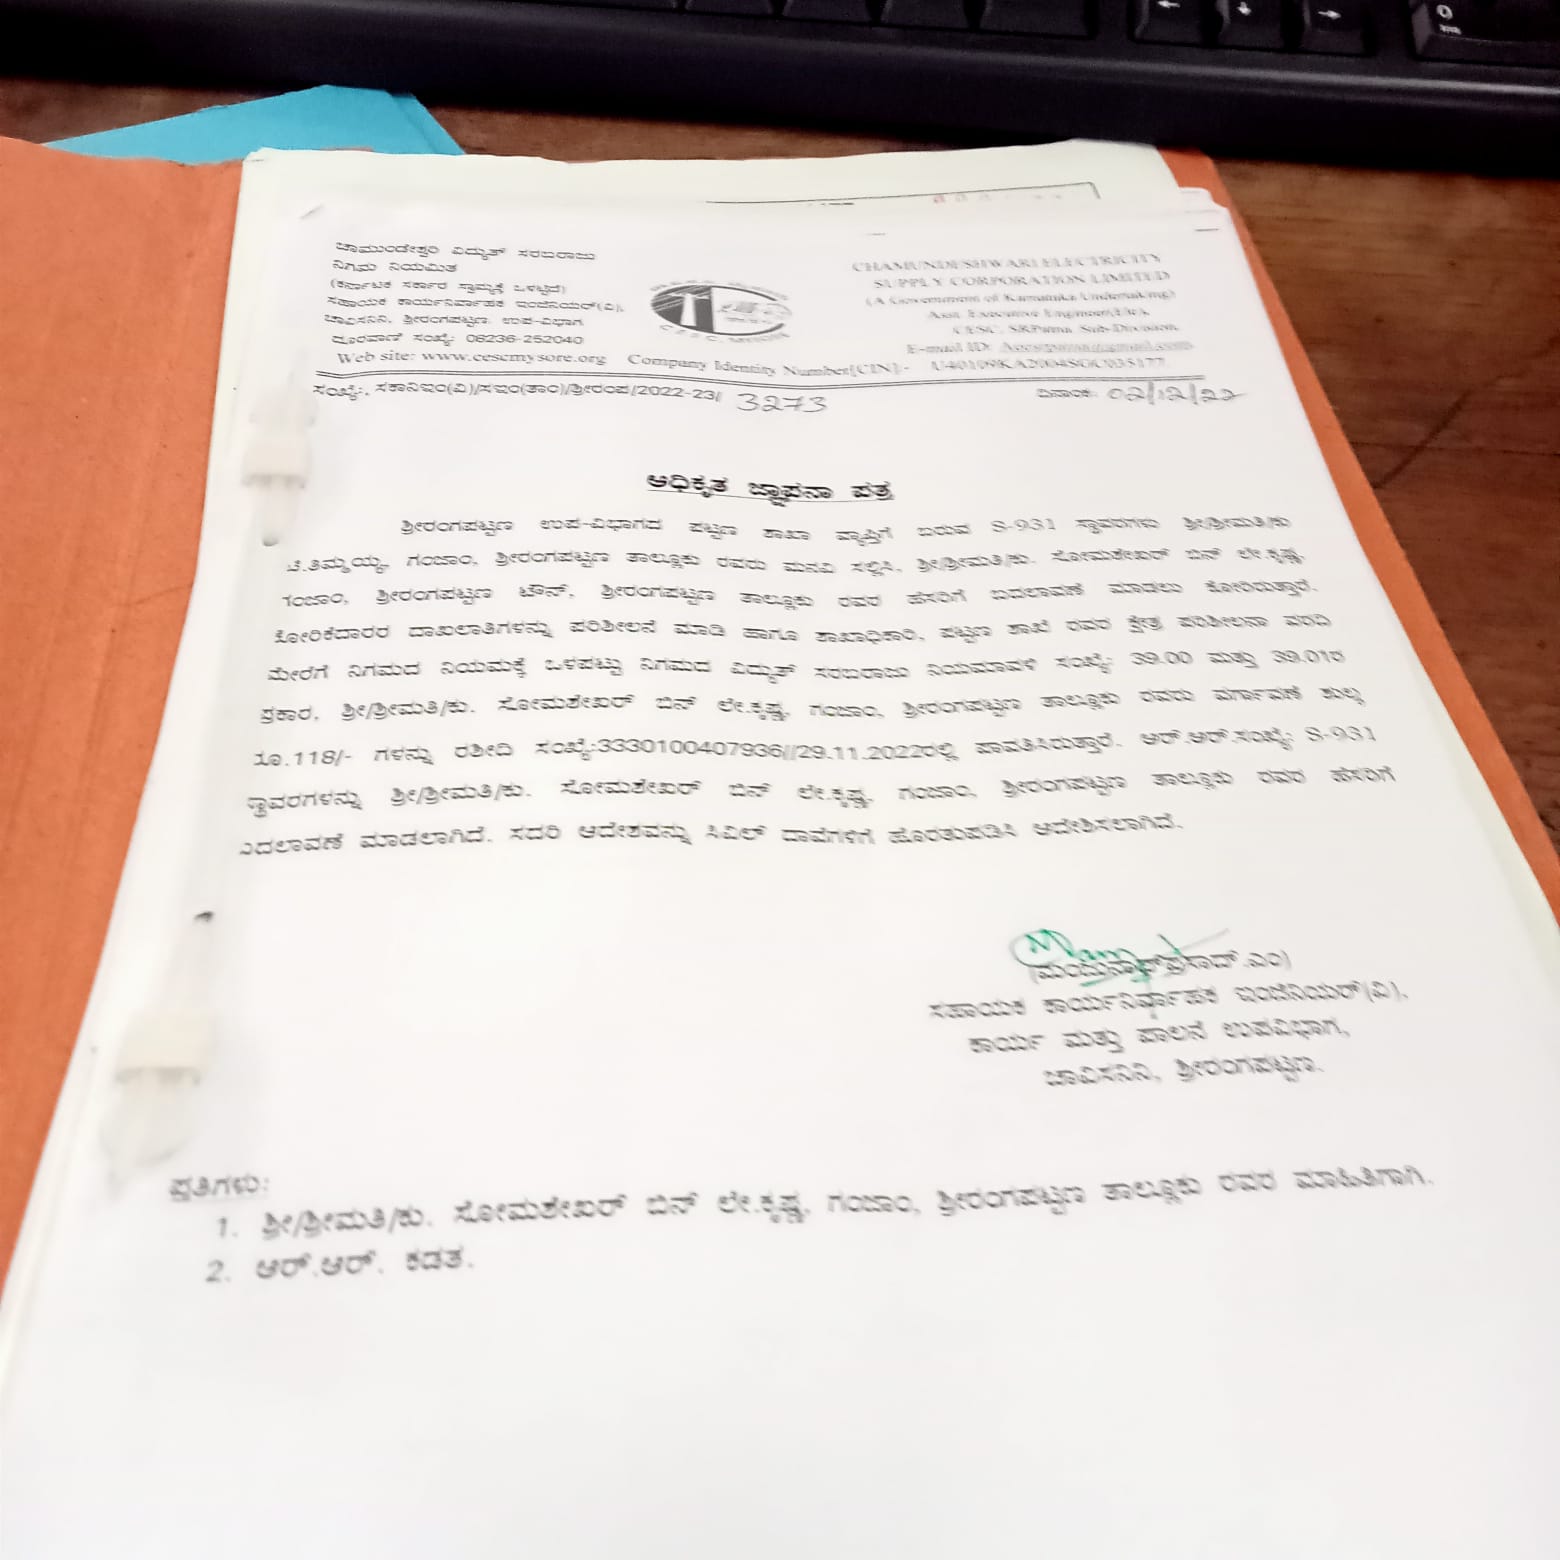 ಚಾಮುಂಡೇಶ್ವರಿ ವಿದ್ಯುತ್ ಸರಬರಾಜು
ನಿಗಮ ನಿಯಮಿತ
(ಕರ್ನಾಟಕ ಸರ್ಕಾರ ಸ್ವಾಮ್ಯಕ್ಕೆ ಒಳಪಟ್ಟಿದೆ)
ಸಹಾಯಕ ಕಾರ್ಯನಿರ್ವಾಹಕ ಇಂಜಿನಿಯರ್(ವಿ),
ಚಾವಿಸನಿನಿ, ಶ್ರೀರಂಗಪಟ್ಟಣ. ಉಪ-ವಿಭಾಗ
ದೂರವಾಣಿ ಸಂಖ್ಯೆ: 08236-252040
CHAMUNDESHWARI ELECTRICITY
SUPPLY CORPORATION LIMITED
(A Government of Karnataka Undertaking)
Asst. Executive Engineer(Ele),
CESC, SRPatna, Sub-Division,
E-mail ID:
Web site: www.cescmysore.org Company Identity Number[CIN]:- U40109KA2004SGC035177
ಸಂಖ್ಯೆ:, ಸಕಾನಿಇಂ(ವಿ)/ಸಇಂ(ತಾಂ)/ಶ್ರೀರಂಪ/2022-23/ 3273 ದಿನಾಂಕ: 02/12/22
ಅಧಿಕೃತ ಜ್ಞಾಪನಾ ಪತ್ರ
ಶ್ರೀರಂಗಪಟ್ಟಣ ಉಪ-ವಿಭಾಗದ ಪಟ್ಟಣ ಶಾಖಾ ವ್ಯಾಪ್ತಿಗೆ ಬರುವ S-931 ಸ್ಥಾವರಗಳು ಶ್ರೀ/ಶ್ರೀಮತಿ/ಕು
ಟಿ.ತಿಮ್ಮಯ್ಯ, ಗಂಜಾಂ, ಶ್ರೀರಂಗಪಟ್ಟಣ ತಾಲ್ಲೂಕು ರವರು ಮನವಿ ಸಲ್ಲಿಸಿ, ಶ್ರೀ/ಶ್ರೀಮತಿ/ಕು. ಸೋಮಶೇಖರ್ ಬಿನ್ ಲೇ.ಕೃಷ್ಣ,
ಗಂಜಾಂ, ಶ್ರೀರಂಗಪಟ್ಟಣ ಟೌನ್, ಶ್ರೀರಂಗಪಟ್ಟಣ ತಾಲ್ಲೂಕು ರವರ ಹೆಸರಿಗೆ ಬದಲಾವಣೆ ಮಾಡಲು ಕೋರಿರುತ್ತಾರೆ.
ಕೋರಿಕೆದಾರರ ದಾಖಲಾತಿಗಳನ್ನು ಪರಿಶೀಲನೆ ಮಾಡಿ ಹಾಗೂ ಶಾಖಾಧಿಕಾರಿ, ಪಟ್ಟಣ ಶಾಖೆ ರವರ ಕ್ಷೇತ್ರ ಪರಿಶೀಲನಾ ವರದಿ
ಮೇರೆಗೆ ನಿಗಮದ ನಿಯಮಕ್ಕೆ ಒಳಪಟ್ಟು ನಿಗಮದ ವಿದ್ಯುತ್ ಸರಬರಾಜು ನಿಯಮಾವಳಿ ಸಂಖ್ಯೆ: 39.00 ಮತ್ತು 39.01ರ
ಪ್ರಕಾರ, ಶ್ರೀ/ಶ್ರೀಮತಿ/ಕು. ಸೋಮಶೇಖರ್ ಬಿನ್ ಲೇ.ಕೃಷ್ಣ, ಗಂಜಾಂ, ಶ್ರೀರಂಗಪಟ್ಟಣ ತಾಲ್ಲೂಕು ರವರು ವರ್ಗಾವಣೆ ಶುಲ್ಕ
ರೂ.118/- ಗಳನ್ನು ರಶೀದಿ ಸಂಖ್ಯೆ:3330100407936//29.11.2022ರಲ್ಲಿ ಪಾವತಿಸಿರುತ್ತಾರೆ. ಆರ್.ಆರ್.ಸಂಖ್ಯೆ: S-931
ಸ್ಥಾವರಗಳನ್ನು ಶ್ರೀ/ಶ್ರೀಮತಿ/ಕು. ಸೋಮಶೇಖರ್ ಬಿನ್ ಲೇ.ಕೃಷ್ಣ, ಗಂಜಾಂ, ಶ್ರೀರಂಗಪಟ್ಟಣ ತಾಲ್ಲೂಕು ರವರ ಹೆಸರಿಗೆ
ಬದಲಾವಣೆ ಮಾಡಲಾಗಿದೆ. ಸದರಿ ಆದೇಶವನ್ನು ಸಿವಿಲ್ ದಾವೆಗಳಿಗೆ ಹೊರತುಪಡಿಸಿ ಆದೇಶಿಸಲಾಗಿದೆ.
(ಮಂಜುನಾಥ್‌ಪ್ರಸಾದ್.ಎಂ)
ಸಹಾಯಕ ಕಾರ್ಯನಿರ್ವಾಹಕ ಇಂಜಿನಿಯರ್(ವಿ),
ಕಾರ್ಯ ಮತ್ತು ಪಾಲನೆ ಉಪವಿಭಾಗ,
ಚಾವಿಸನಿನಿ, ಶ್ರೀರಂಗಪಟ್ಟಣ.
ಪ್ರತಿಗಳು:
1. ಶ್ರೀ/ಶ್ರೀಮತಿ/ಕು. ಸೋಮಶೇಖರ್ ಬಿನ್ ಲೇ.ಕೃಷ್ಣ, ಗಂಜಾಂ, ಶ್ರೀರಂಗಪಟ್ಟಣ ತಾಲ್ಲೂಕು ರವರ ಮಾಹಿತಿಗಾಗಿ.
2. ಆರ್.ಆರ್. ಕಡತ.